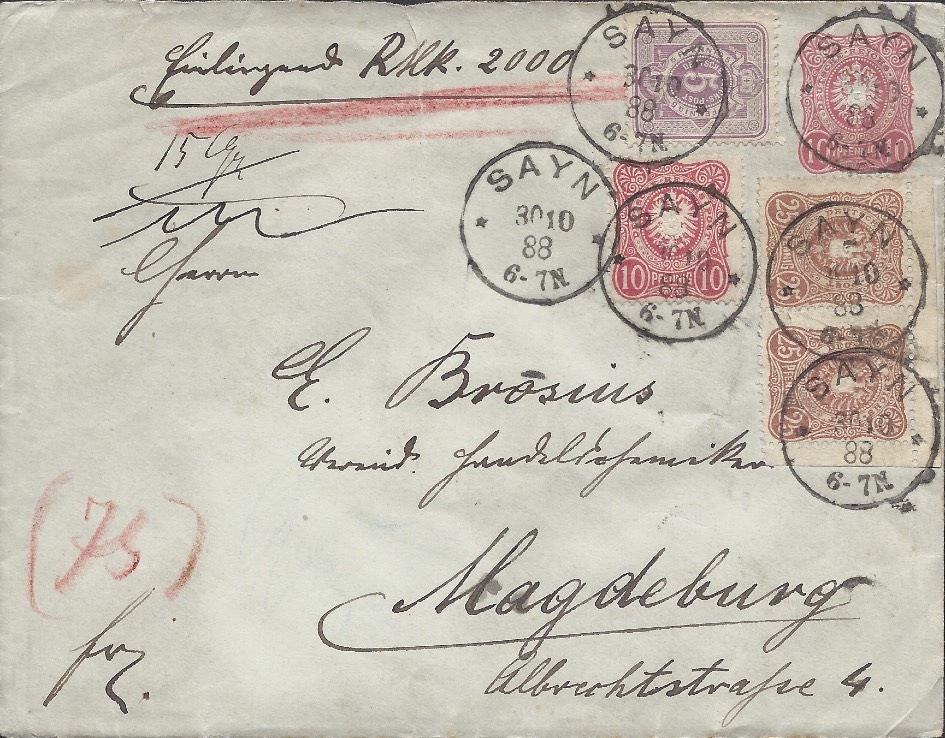 Einliegend RMk. 2000
15 Gr
SAYN
30 10
88
6-7N
5
SAYN
88
6-7N
10 PFENNIG 10
SAYN
30 10
88
6-7N
SAYN
88
6-7N
10 PFENNIG 10
SAYN
10
88
25
Herrn
E. Brosius
Vereid. Handelschemiker
SAYN
30 10
88
6-7N
25
(75)
Magdeburg
frz.
Albrechtstraße 4.